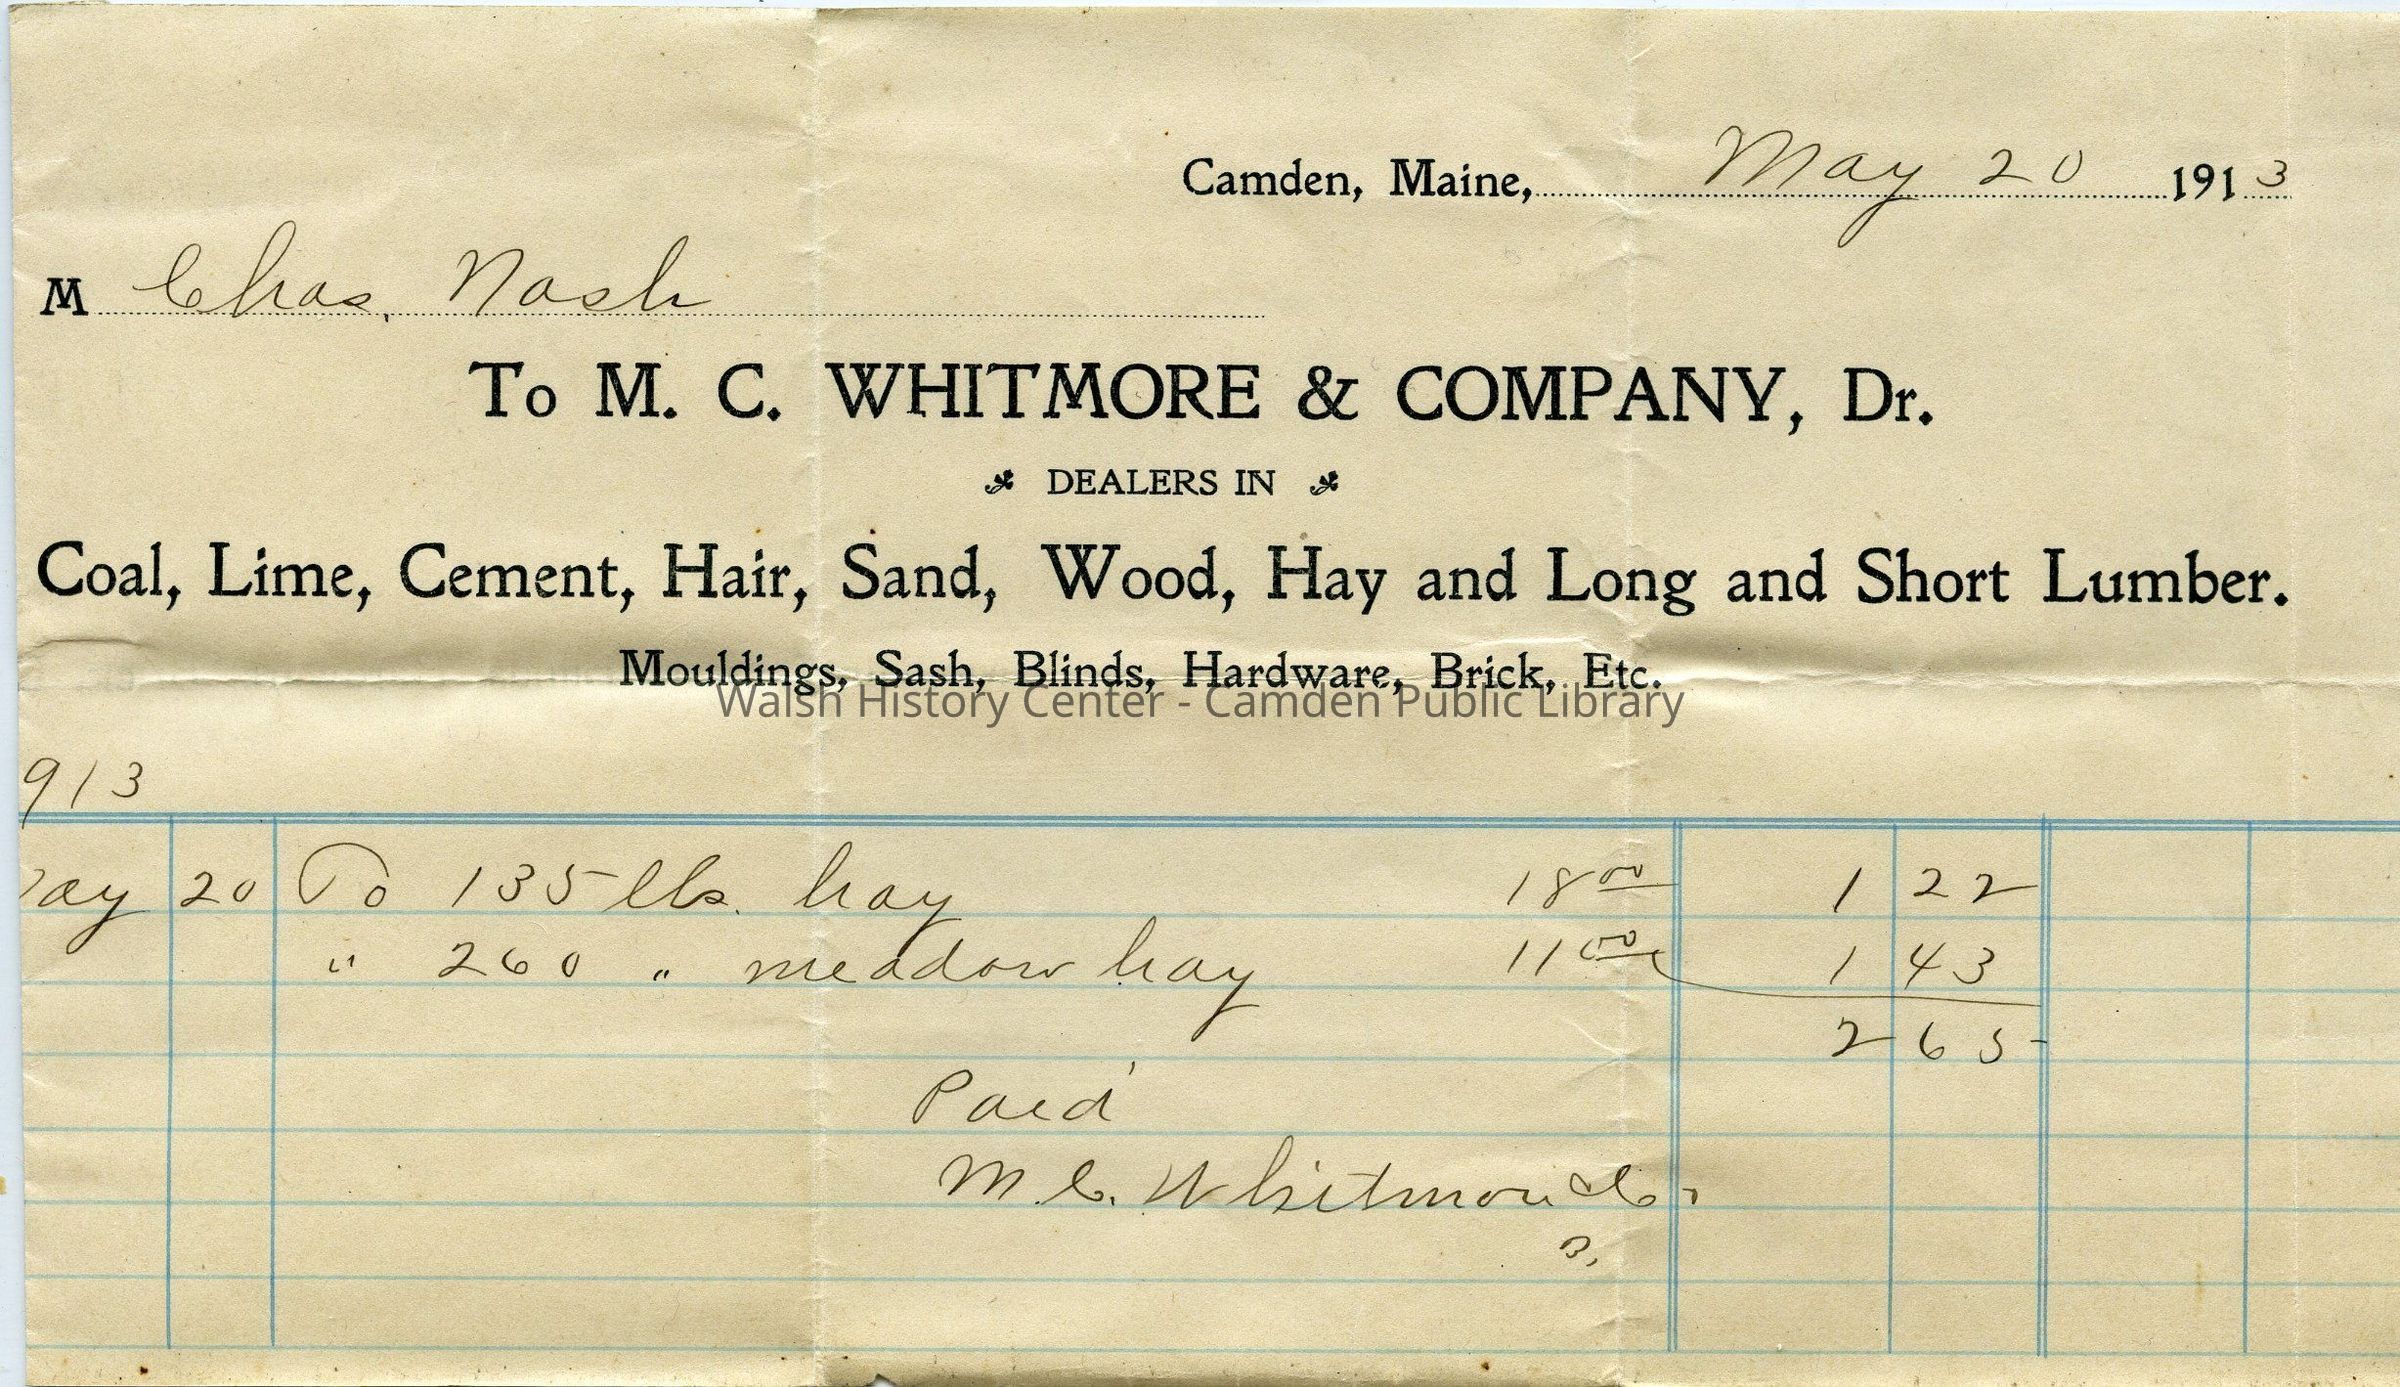 Camden, Maine, May 20 1913
M Chas. Nash
To M. C. WHITMORE & COMPANY, Dr.
DEALERS IN
Coal, Lime, Cement, Hair, Sand, Wood, Hay and Long and Short Lumber.
Mouldings, Sash, Blinds, Hardware, Brick, Etc.
Walsh History Center - Camden Public Library
913
ay 20 To 135 lbs. hay 18 00 1 22
" 260 " meadow hay 11 00 1 43
2 65
Paid
M. C. Whitmore & Co.